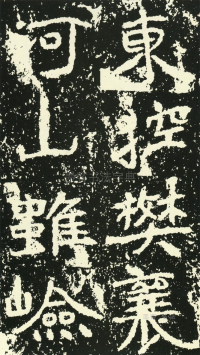 東控樊襄
河山雖嶮